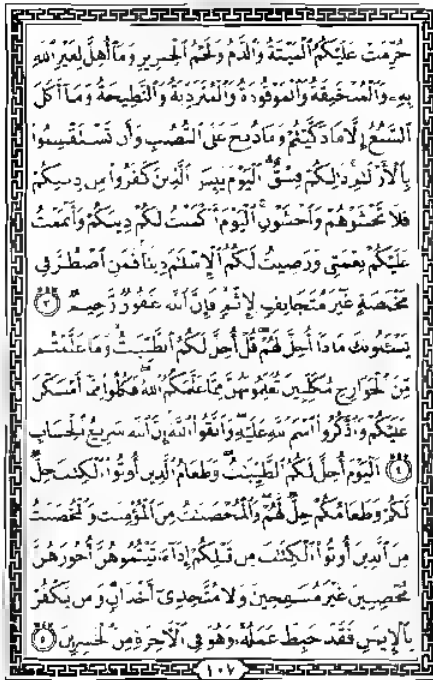 حُرِّمَتْ عَلَيْكُمُ ٱلْمَيْتَةُ وَٱلدَّمُ وَلَحْمُ ٱلْخِنزِيرِ وَمَآ أُهِلَّ لِغَيْرِ ٱللَّهِ
بِهِۦ وَٱلْمُنْخَنِقَةُ وَٱلْمَوْقُوذَةُ وَٱلْمُتَرَدِّيَةُ وَٱلنَّطِيحَةُ وَمَآ أَكَلَ
ٱلسَّبُعُ إِلَّا مَا ذَكَّيْتُمْ وَمَا ذُبِحَ عَلَى ٱلنُّصُبِ وَأَن تَسْتَقْسِمُوا۟
بِٱلْأَزْلَٰمِ ۚ ذَٰلِكُمْ فِسْقٌ ۗ ٱلْيَوْمَ يَئِسَ ٱلَّذِينَ كَفَرُوا۟ مِن دِينِكُمْ
فَلَا تَخْشَوْهُمْ وَٱخْشَوْنِ ۚ ٱلْيَوْمَ أَكْمَلْتُ لَكُمْ دِينَكُمْ وَأَتْمَمْتُ
عَلَيْكُمْ نِعْمَتِى وَرَضِيتُ لَكُمُ ٱلْإِسْلَٰمَ دِينًا ۚ فَمَنِ ٱضْطُرَّ فِى
مَخْمَصَةٍ غَيْرَ مُتَجَانِفٍ لِّإِثْمٍ ۙ فَإِنَّ ٱللَّهَ غَفُورٌ رَّحِيمٌ ٣
يَسْـَٔلُونَكَ مَاذَآ أُحِلَّ لَهُمْ ۖ قُلْ أُحِلَّ لَكُمُ ٱلطَّيِّبَٰتُ ۙ وَمَا عَلَّمْتُم
مِّنَ ٱلْجَوَارِحِ مُكَلِّبِينَ تُعَلِّمُونَهُنَّ مِمَّا عَلَّمَكُمُ ٱللَّهُ ۖ فَكُلُوا۟ مِمَّآ أَمْسَكْنَ
عَلَيْكُمْ وَٱذْكُرُوا۟ ٱسْمَ ٱللَّهِ عَلَيْهِ ۖ وَٱتَّقُوا۟ ٱللَّهَ ۚ إِنَّ ٱللَّهَ سَرِيعُ ٱلْحِسَابِ
٤ ٱلْيَوْمَ أُحِلَّ لَكُمُ ٱلطَّيِّبَٰتُ ۖ وَطَعَامُ ٱلَّذِينَ أُوتُوا۟ ٱلْكِتَٰبَ حِلٌّ
لَّكُمْ وَطَعَامُكُمْ حِلٌّ لَّهُمْ ۖ وَٱلْمُحْصَنَٰتُ مِنَ ٱلْمُؤْمِنَٰتِ وَٱلْمُحْصَنَٰتُ
مِنَ ٱلَّذِينَ أُوتُوا۟ ٱلْكِتَٰبَ مِن قَبْلِكُمْ إِذَآ ءَاتَيْتُمُوهُنَّ أُجُورَهُنَّ
مُحْصِنِينَ غَيْرَ مُسَٰفِحِينَ وَلَا مُتَّخِذِىٓ أَخْدَانٍ ۗ وَمَن يَكْفُرْ
بِٱلْإِيمَٰنِ فَقَدْ حَبِطَ عَمَلُهُۥ وَهُوَ فِى ٱلْءَاخِرَةِ مِنَ ٱلْخَٰسِرِينَ ٥
١٠٧